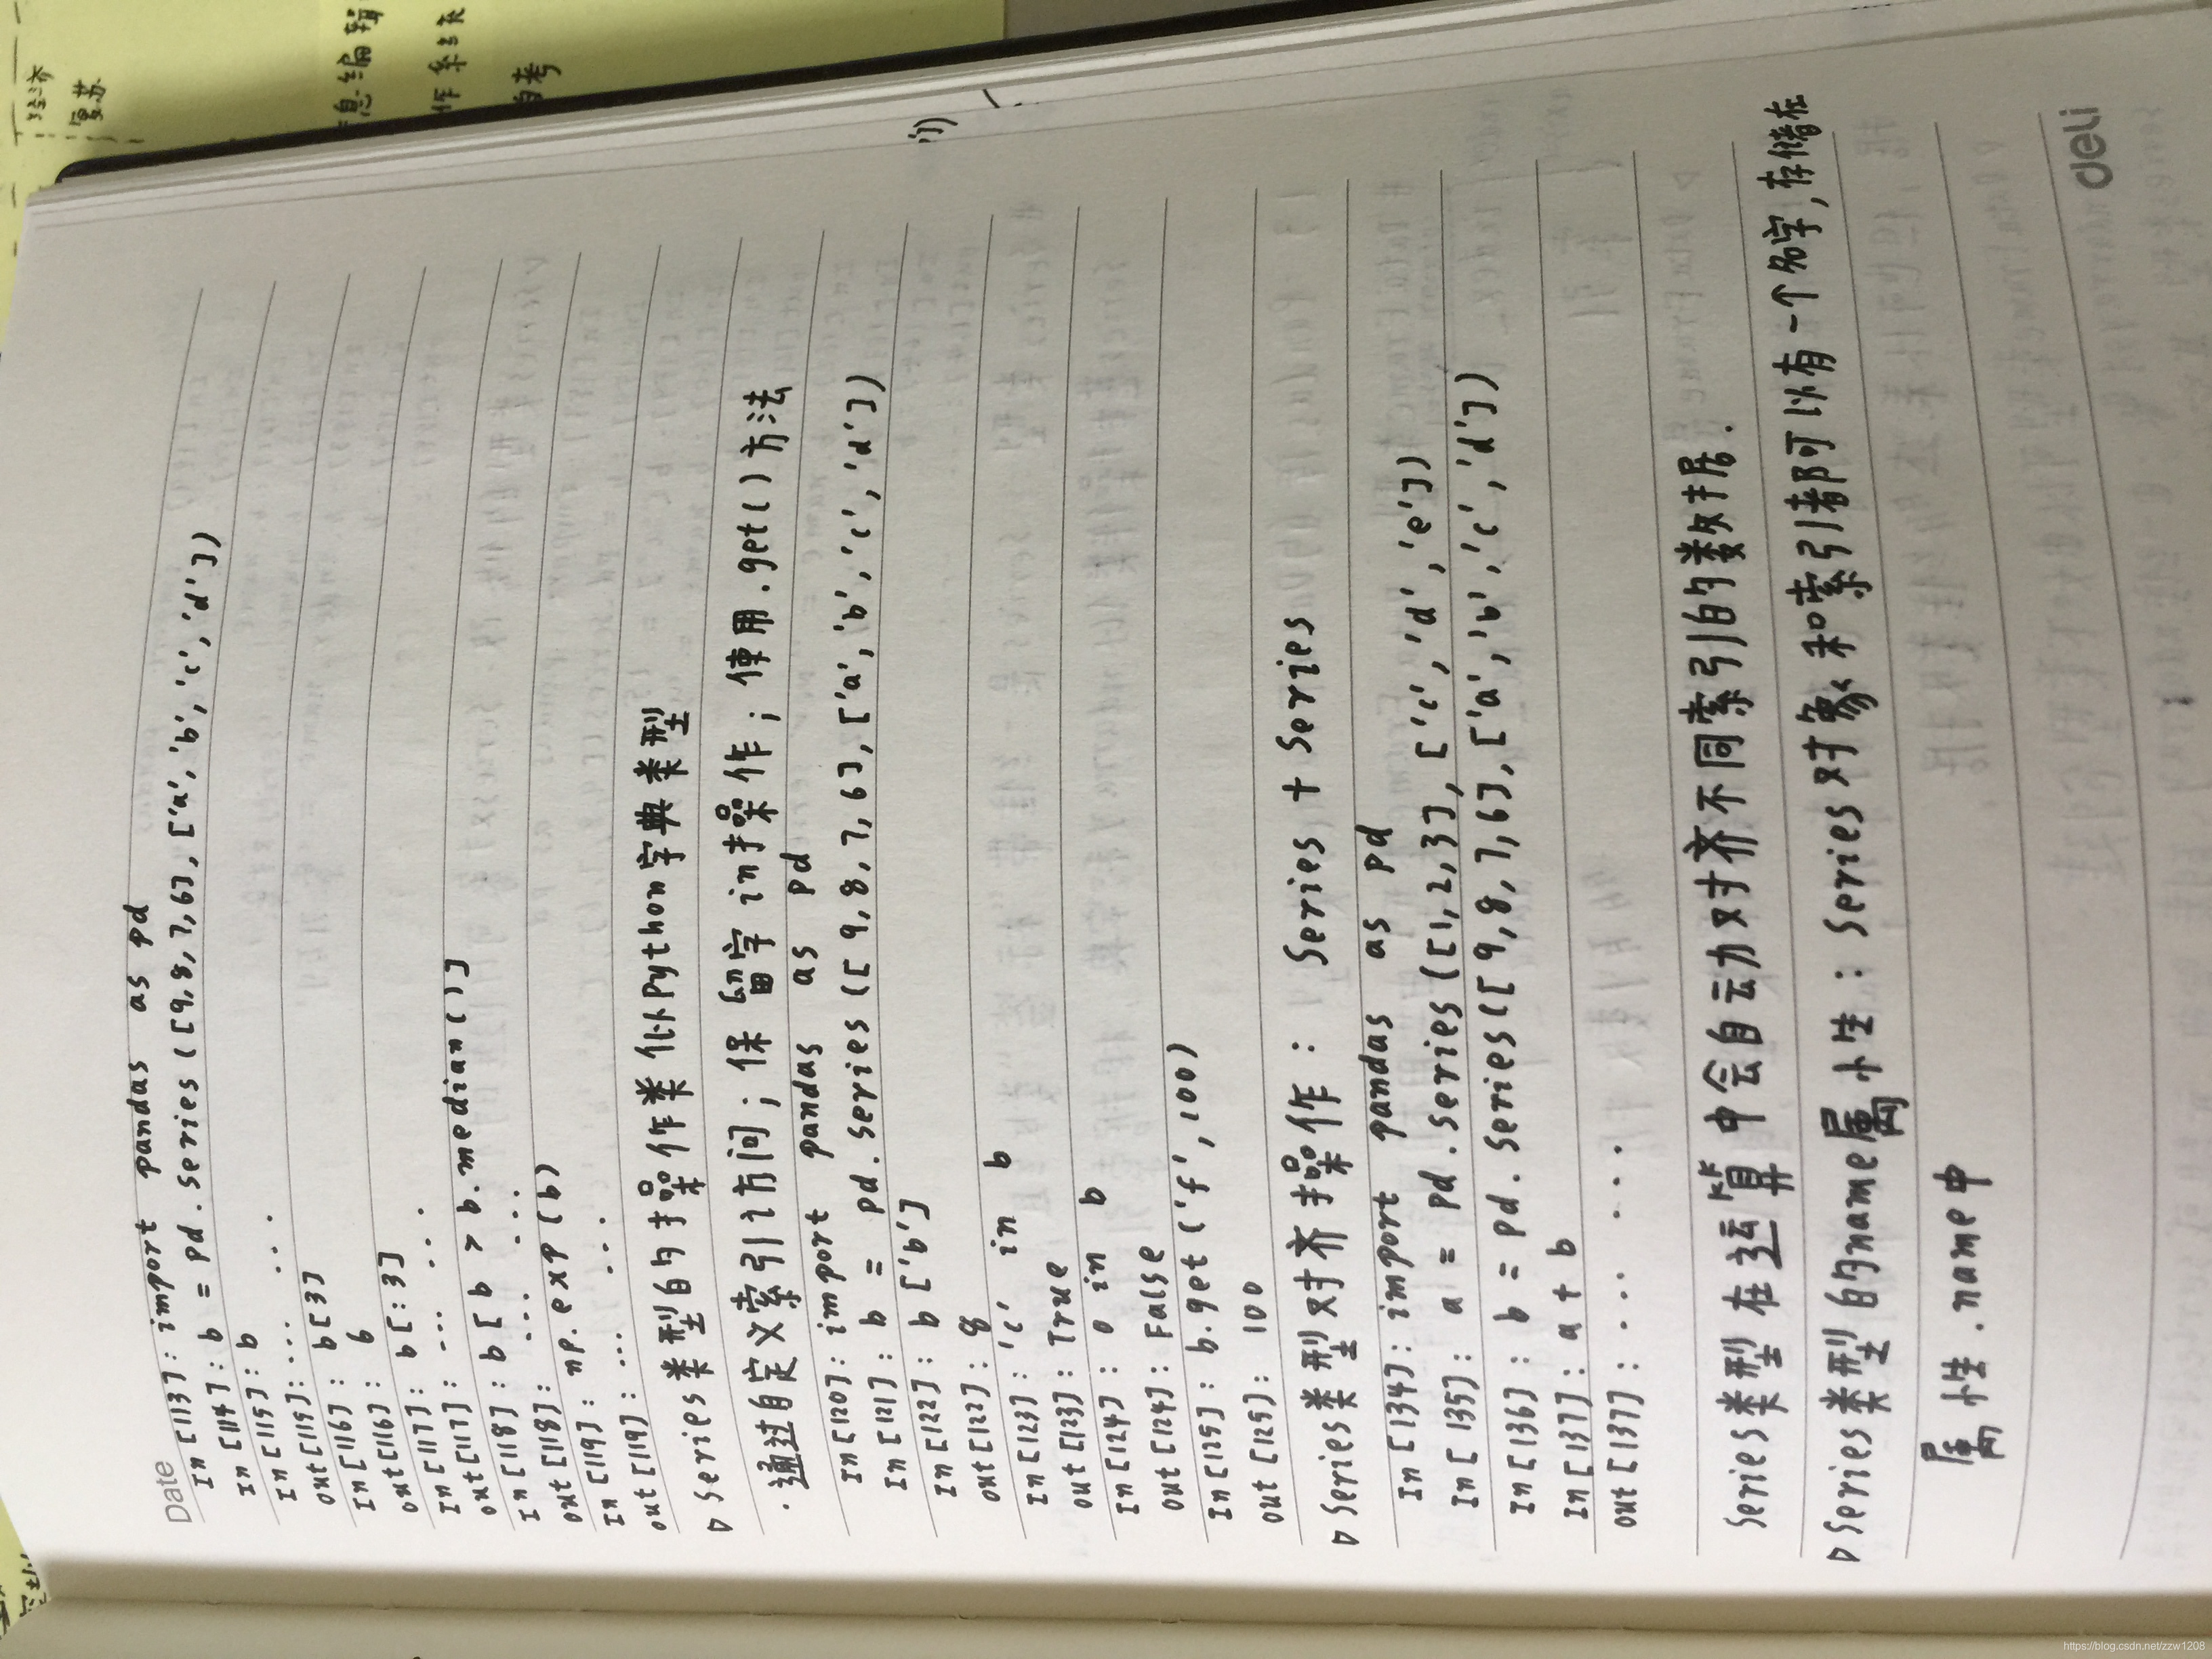 Date
In [113]: import pandas as pd
In [114]: b = pd.Series([9,8,7,6],['a','b','c','d'])
In [115]: b
out[115]: ... ...
In [116]: b[3]
out[116]: 6
In [117]: b[:3]
out[117]: ... ...
In [118]: b[b > b.median()]
out[118]: ... ...
In [119]: np.exp(b)
out[119]: ... ...
▷Series类型的操作类似Python字典类型
·通过自定义索引访问;保留字in操作;使用.get()方法
In [120]: import pandas as pd
In [121]: b = pd.Series([9,8,7,6],['a','b','c','d'])
In [122]: b['b']
out[122]: 8
In [123]: 'c' in b
out[123]: True
In [124]: 0 in b
out[124]: False
In [125]: b.get('f',100)
out[125]: 100
▷Series类型对齐操作: Series + Series
In [134]: import pandas as pd
In [135]: a = pd.Series([1,2,3],['c','d','e'])
In [136]: b = pd.Series([9,8,7,6],['a','b','c','d'])
In [137]: a + b
out[137]: .... ....
Series类型在运算中会自动对齐不同索引的数据.
▷Series类型的name属性: Series对象和索引都可以有一个名字,存储在
属性.name中
deli
经济
复苏
息编辑
作系统
https://blog.csdn.net/zzw1208